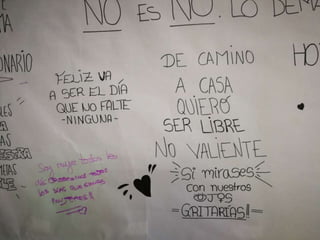 NO ES NO. LO DEMA
TA
ONARIO
FELIZ VA
A SER EL DÍA
QUE NO FALTE
-NINGUNA-
DE CAMINO
A CASA
QUIERO
SER LIBRE
NO VALIENTE
Si mirases
con nuestros
OJOS
GRITARÍAS!!
HO
LES
AS
Soy mujer todos los